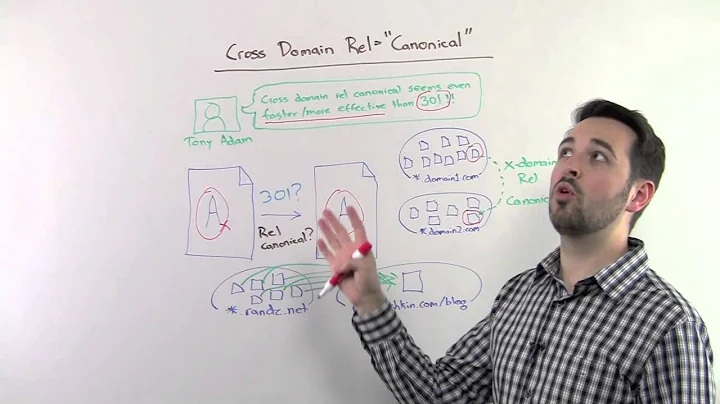 Cross Domain Rel="Canonical"
Cross domain rel canonical seems even
faster/more effective than 301!!
Tony Adam
A
301?
Rel
Canonical?
A
*.domain1.com
*.domain2.com
X-domain
Rel
*.randz.net
hkin.com/blog